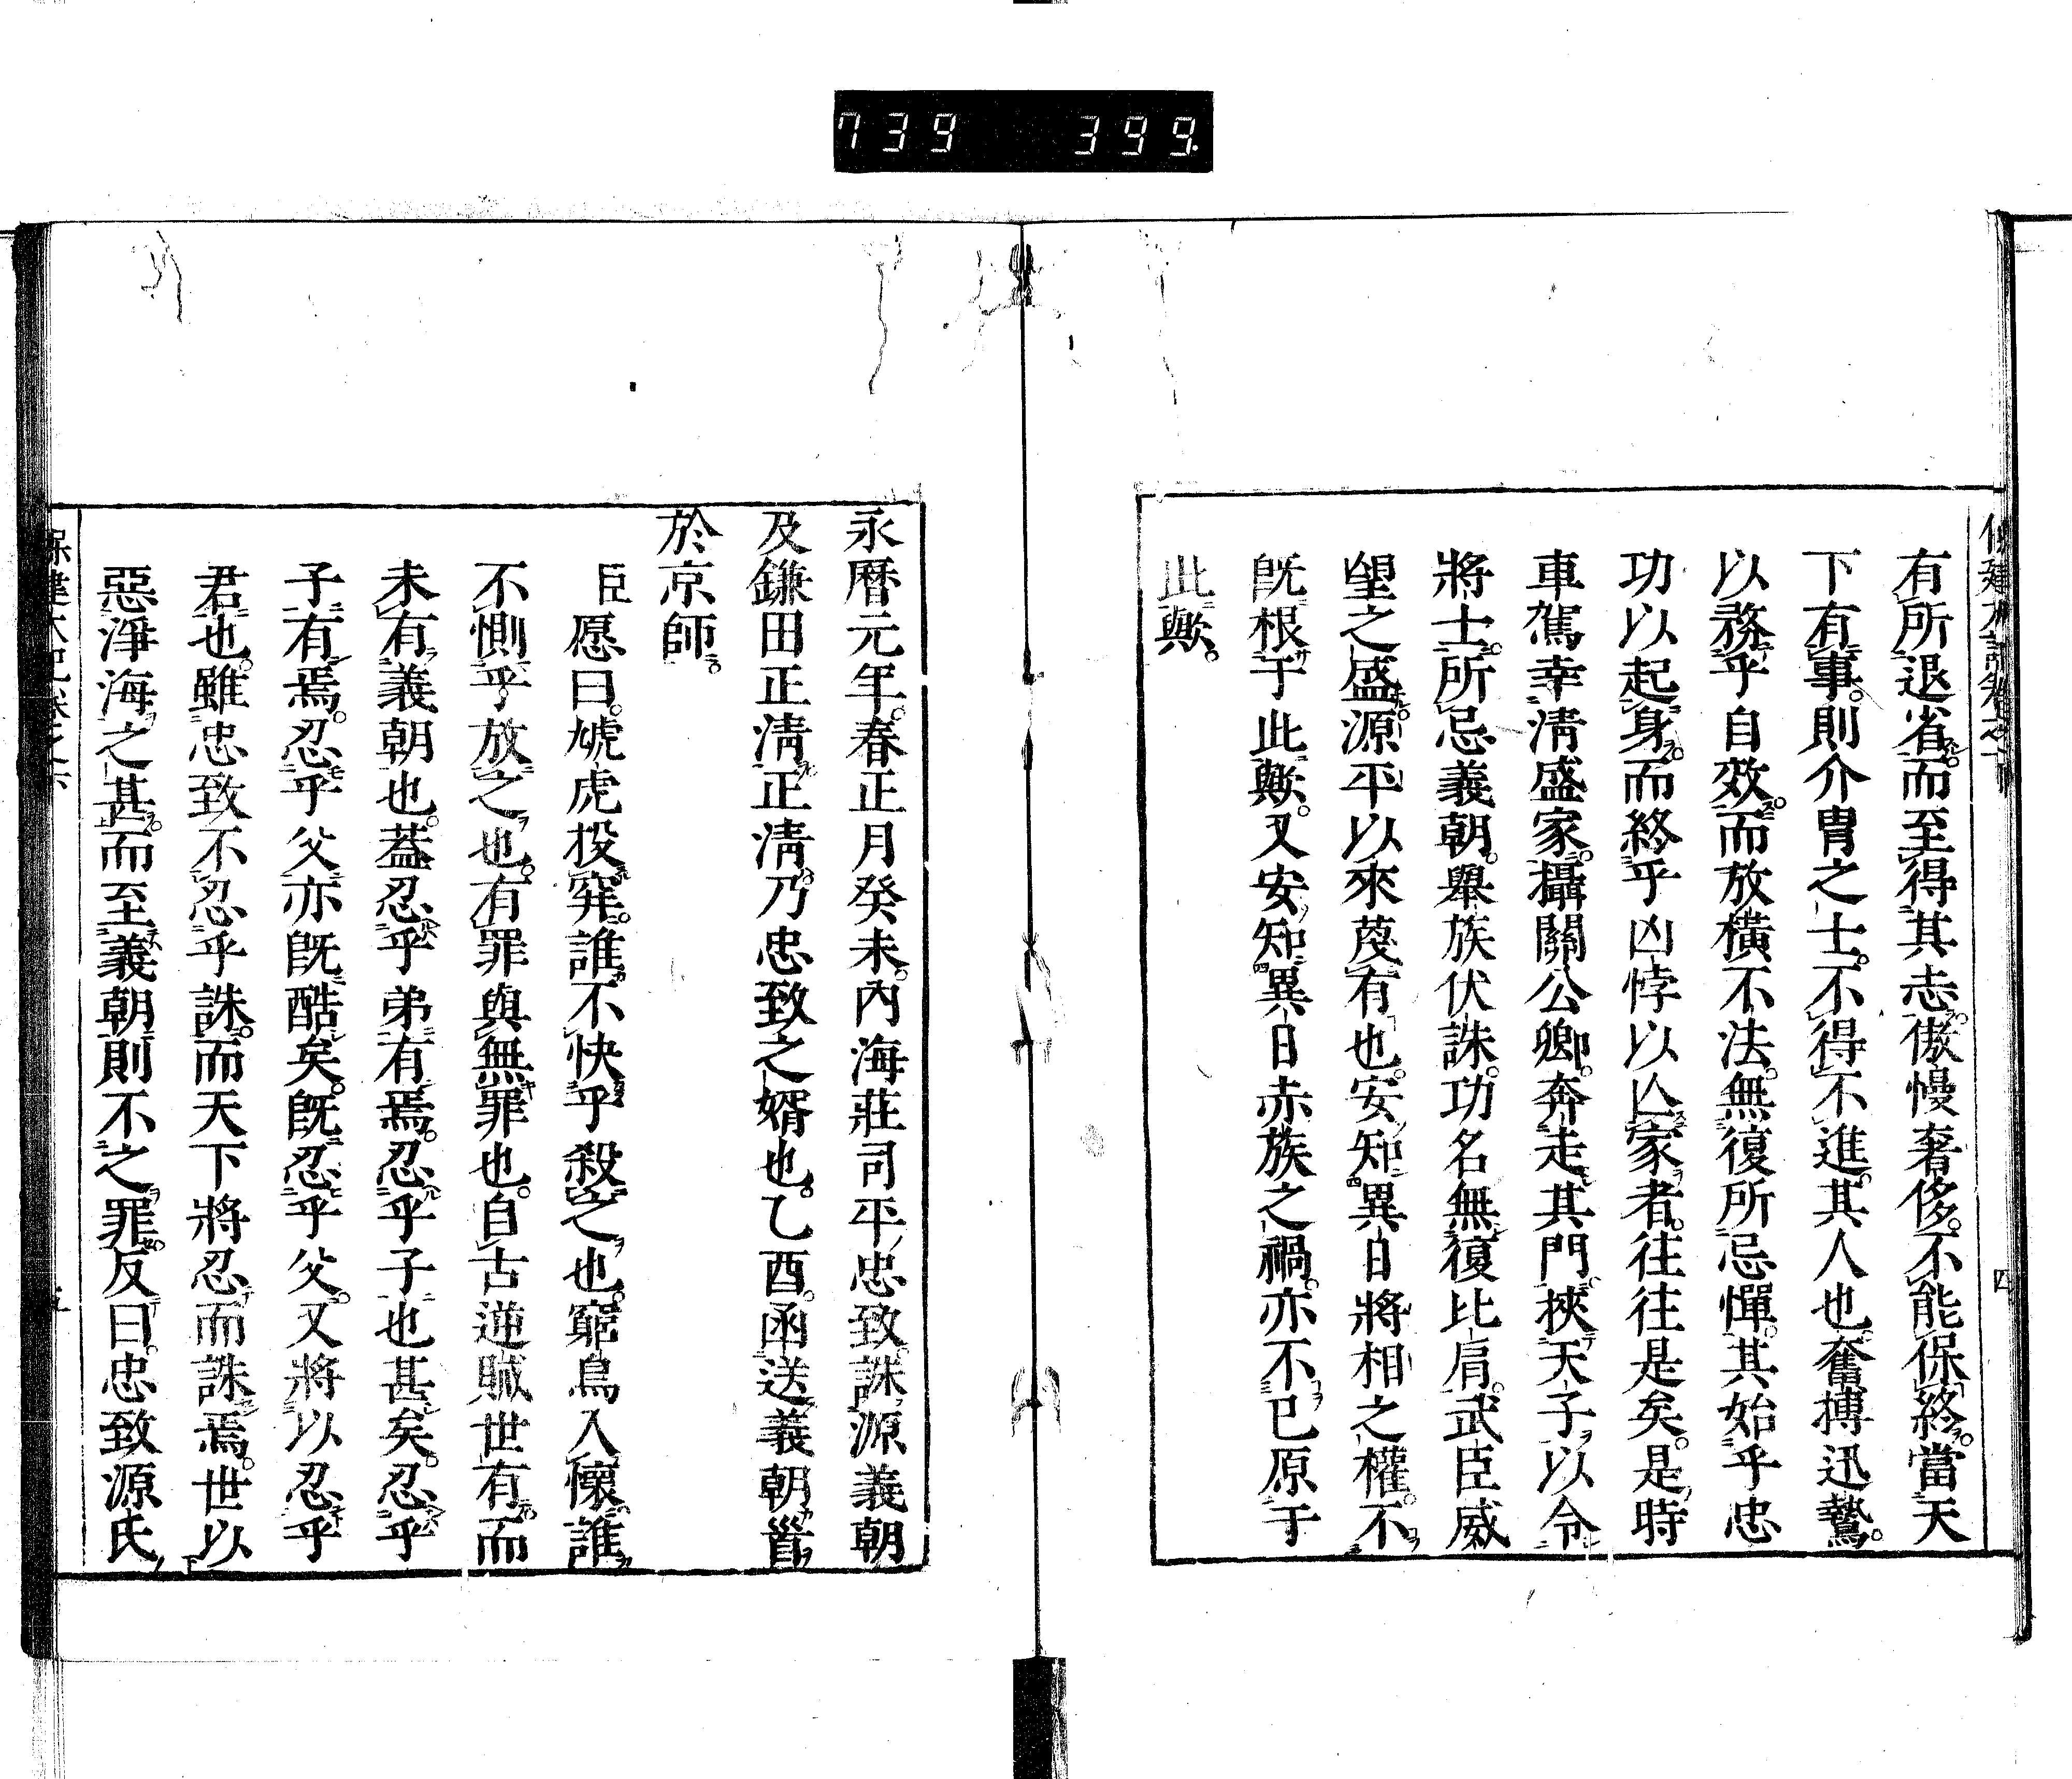 739 399.
有所退省。而至得其志。傲慢奢侈。不能保終。當天
下有事。則介冑之士。不得不進。其人也。奮搏迅鷙。
以務乎自效。而放橫不法。無復所忌憚。其始乎忠
功以起身。而終乎凶悖以亾家者。往往是矣。是時
車駕幸淸盛家。攝關公卿。奔走其門。挾天子以令
將士。所忌義朝。舉族伏誅。功名無復比肩。武臣威
望之盛。源平以來蔑有也。安知異日將相之權。不
旣根于此歟。又安知異日赤族之禍。亦不已原于
此歟。
四
永曆元年。春正月癸未。內海莊司平忠致。誅源義朝
及鎌田正淸。正淸。乃忠致之婿也。乙酉。函送義朝首
於京師。
臣愿曰。虓虎投穽。誰不快乎殺之也。窮鳥入懷。誰
不惻乎放之也。有罪與無罪也。自古逆賊世有。而
未有義朝也。蓋忍乎弟有焉。忍乎子也甚矣。忍乎
子有焉。忍乎父亦旣酷矣。旣忍乎父。又將以忍乎
君也。雖忠致不忍乎誅。而天下將忍而誅焉。世以
惡淨海之甚。而至義朝則不之罪。反曰。忠致源氏
保建大記卷之下
五